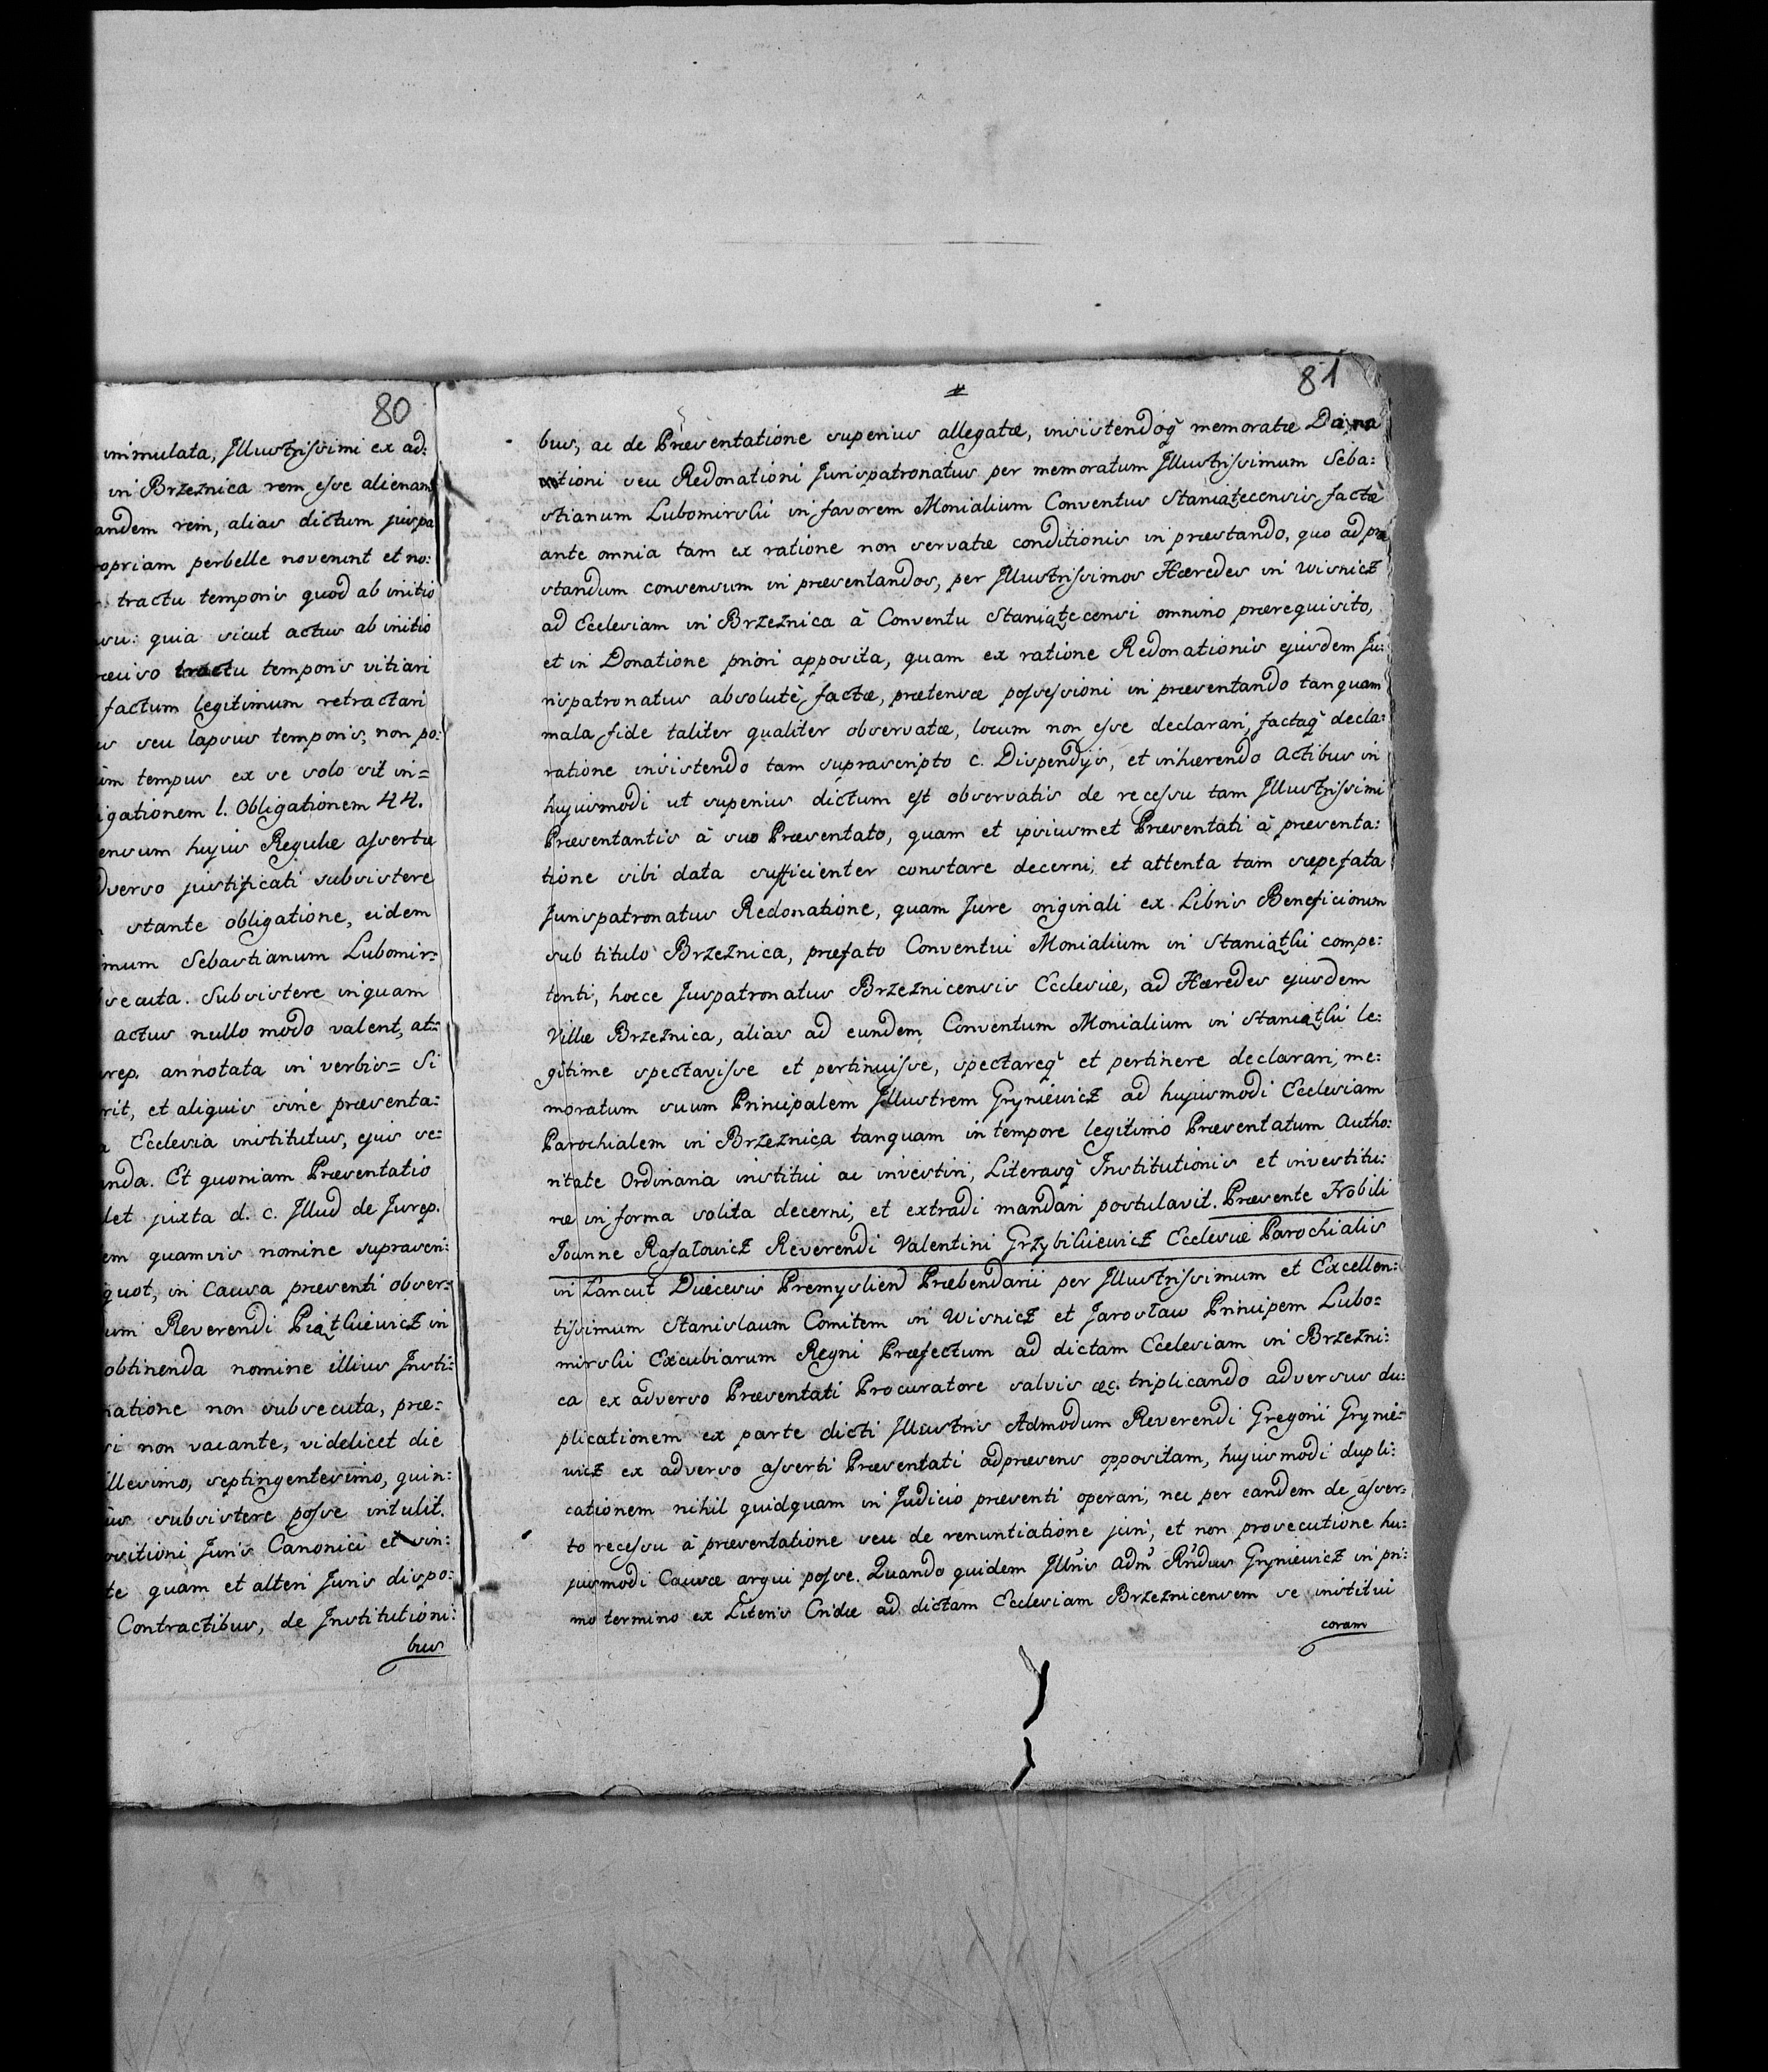 80
inimulata, Illustrissimi ex ad:
in Brzeznica rem esse alienam
andem rem, alias dictum juspa
opriam perbelle noverint et no:
tractu temporis quod ab initio
su: quia sicut actus ab initio
tractu temporis vitiari
factum legitimum retractari
us seu lapsus temporis, non po:
im tempus ex se solo sit in=
igationem l. Obligationem 44.
ensum hujus Regulæ assertæ
dverso justificati subsistere
stante obligatione, eidem
imum Sebastianum Lubomir=
secuta. Subsistere inquam
actus nullo modo valent, at=
rep. annotata in verbis= Si
rit, et aliquis sine præsenta:
a Ecclesia institutus, ejus se:
anda. Et quoniam Præsentatio
let juxta d. c. Illud de Jurep.
em quamvis nomine suprascri:
quot, in Causa præsenti obser=
um Reverendi Piątkiewicz in
obtinenda nomine illius Insti:
natione non subsecuta, præ=
si non vacante, videlicet die
illesimo, septingentesimo, quin:
us subsistere posse intulit.
ositioni Juris Canonici et sin:
te quam et alteri Juris dispo:
Contractibus, de Institutioni:
bus
81
bus, ac de Præsentatione superius allegatæ, insistendoq̃ memoratæ Dona
tioni seu Redonationi Jurispatronatus per memoratum Illustrissimum Seba:
stianum Lubomirski in favorem Monialium Conventus Staniątecensis factæ
ante omnia tam ex ratione non servatæ conditionis in præstando, quo ad præ
standum consensum in præsentandos, per Illustrissimos Hæredes in Wisnicz
ad Ecclesiam in Brzeznica à Conventu Staniątecensi omnino prærequisito,
et in Donatione priori apposita, quam ex ratione Redonationis ejusdem Ju:
rispatronatus absolutè factæ, prætensæ possessioni in præsentando tanquam
mala fide taliter qualiter observatæ, locum non esse declarari, factaq̃ decla:
ratione insistendo tam suprascripto c. Dispendijs, et inhærendo Actibus in
hujusmodi ut superius dictum est observatis de recessu tam Illustrissimi
Præsentantis à suo Præsentato, quam et ipsiusmet Præsentati à præsenta:
tione sibi data sufficienter constare decerni, et attenta tam sæpefata
Jurispatronatus Redonatione, quam Jure originali ex Libris Beneficiorum
sub titulo Brzeznica, præfato Conventui Monialium in Staniątki compe:
tenti, hocce Juspatronatus Brzeznicensis Ecclesiæ, ad Hæredes ejusdem
Villæ Brzeznica, alias ad eundem Conventum Monialium in Staniątki le:
gitime spectavisse et pertinuisse, spectareq̃ et pertinere declarari, me:
moratum suum Principalem Illustrem Gryniewicz ad hujusmodi Ecclesiam
Parochialem in Brzeznica tanquam in tempore legitimo Præsentatum Autho:
ritate Ordinaria institui ac investiri, Literasq̃ Institutionis et investitu:
ræ in forma solita decerni, et extradi mandari postulavit. Præsente Nobili
Joanne Rafałowicz Reverendi Valentini Grzybkiewicz Ecclesiæ Parochialis
in Łancut Diæcesis Premyslien Præbendarii per Illustrissimum et Excellen:
tissimum Stanislaum Comitem in Wisnicz et Jarosław Principem Lubo=
mirski Excubiarum Regni Præfectum ad dictam Ecclesiam in Brzezni:
ca ex adverso Præsentati Procuratore salvis &c. triplicando adversus du:
plicationem ex parte dicti Illustris Admodum Reverendi Gregorii Grynie=
wicz ex adverso asserti Præsentati adpræsens oppositam, hujusmodi dupli:
cationem nihil quidquam in Judicio præsenti operari, nec per eandem de asser:
to recessu à præsentatione seu de renuntiatione juri, et non prosecutione hu:
jusmodi Causæ argui posse. Quando quidem Illr̃is Adm̃ Rn̄dus Gryniewicz in pri:
mo termino ex Literis Cridæ ad dictam Ecclesiam Brzeznicensem se institui
coram